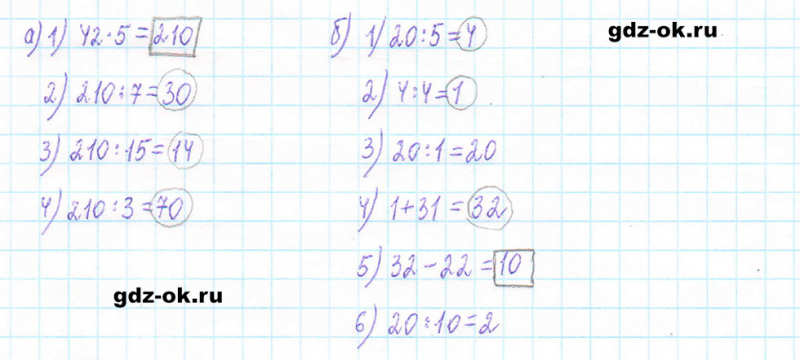 а) 1) 42·5=210
2) 210:7=30
3) 210:15=14
4) 210:3=70
gdz-ok.ru
gdz-ok.ru
б) 1) 20:5=4
2) 4:4=1
3) 20:1=20
4) 1+31=32
5) 32-22=10
6) 20:10=2